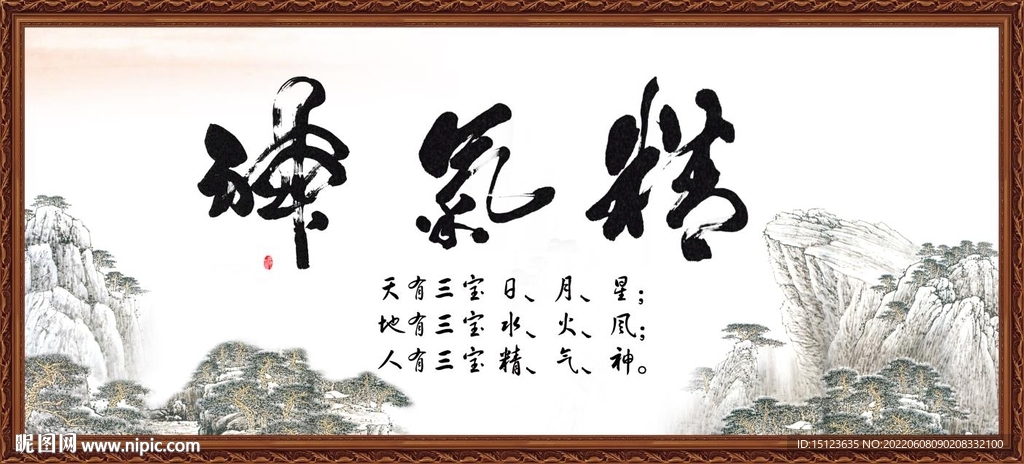 精氣神
天有三宝日、月、星；
地有三宝水、火、风；
人有三宝精、气、神。
昵图网 www.nipic.com
ID:15123635 NO:20220608090208332100